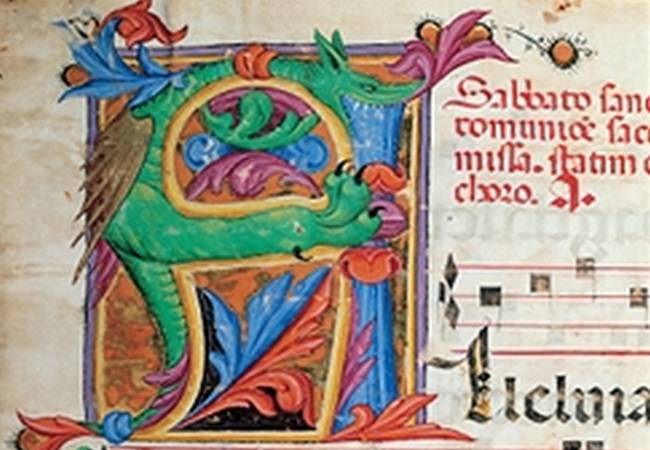 Sabbato sanc
comunioē sac
missa. statim
choro. A.
Alleluia